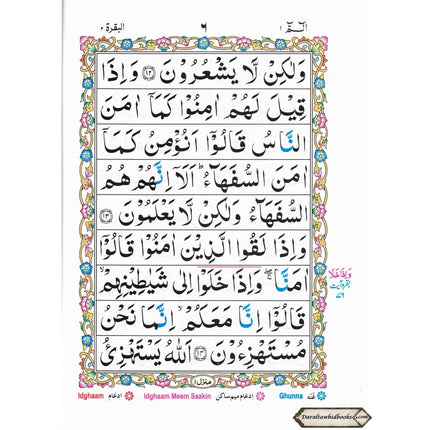 الٓمّٓ ۱ ٦ البقرة ۲
وَلٰكِنْ لَّا يَشْعُرُوْنَ ﴿۱۲﴾ وَاِذَا
قِيْلَ لَهُمْ اٰمِنُوْا كَمَاۤ اٰمَنَ
النَّاسُ قَالُوْۤا اَنُؤْمِنُ كَمَاۤ
اٰمَنَ السُّفَهَآءُ ؕ اَلَاۤ اِنَّهُمْ هُمُ
السُّفَهَآءُ وَلٰكِنْ لَّا يَعْلَمُوْنَ ﴿۱۳﴾
وَاِذَا لَقُوا الَّذِيْنَ اٰمَنُوْا قَالُوْۤا
اٰمَنَّا ۖۚ وَاِذَا خَلَوْا اِلٰى شَيٰطِيْنِهِمْ ۙ
قَالُوْۤا اِنَّا مَعَكُمْ ۙ اِنَّمَا نَحْنُ
مُسْتَهْزِءُوْنَ ﴿۱۴﴾ اَللّٰهُ يَسْتَهْزِئُ
منزل ۱
Idghaam ادغام Idghaam Meem Saakin ادغام میم ساکن Ghunna غنّہ
Daraltawhidbooks.com